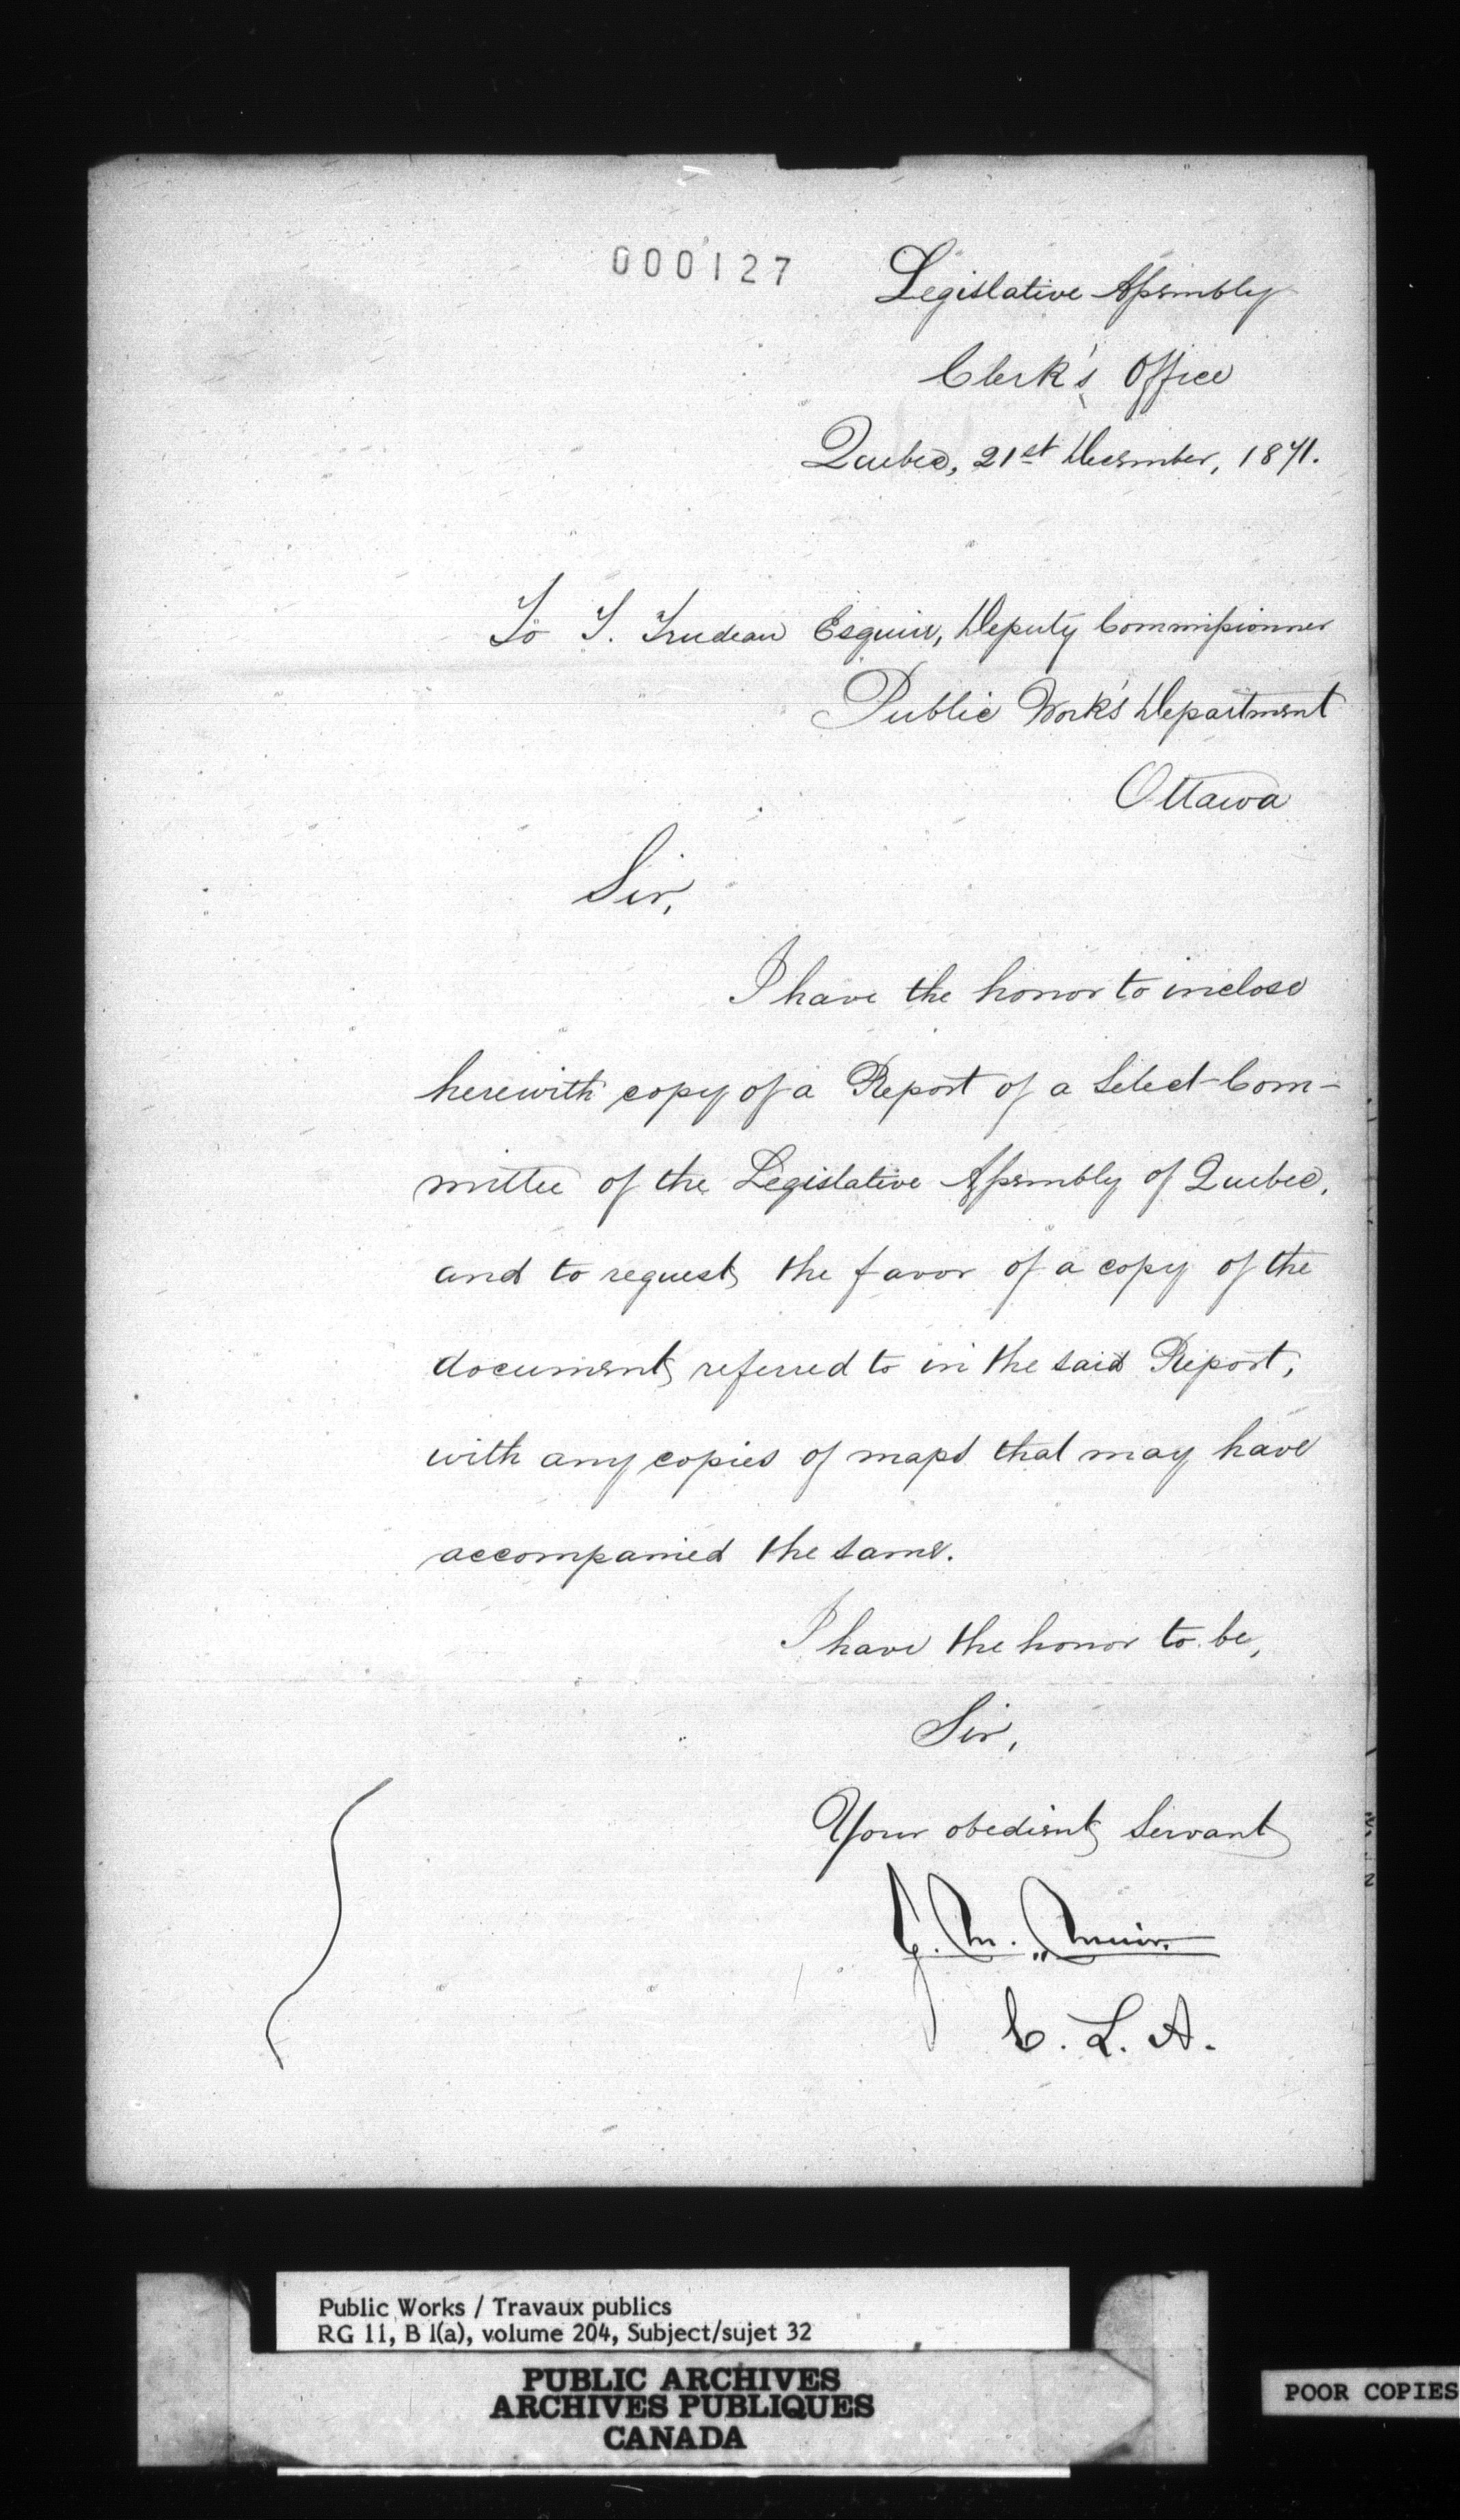 000127
Legislative Assembly
Clerk's Office
Quebec, 21st December, 1871.
To T. Trudeau Esquire, Deputy Commissionner
Public Work's Department
Ottawa
Sir,
I have the honor to inclose
herewith copy of a Report of a Select Com-
mittee of the Legislative Assembly of Quebec,
and to request the favor of a copy of the
document referred to in the said Report,
with any copies of maps that may have
accompanied the same.
I have the honor to be,
Sir,
Your obedient Servant
G. M. Muir.
C. L. A.
Public Works / Travaux publics
RG 11, B 1(a), volume 204, Subject/sujet 32
PUBLIC ARCHIVES
ARCHIVES PUBLIQUES
CANADA
POOR COPIES